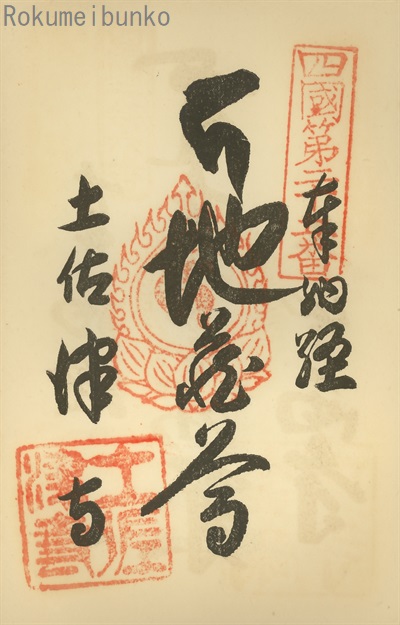 Rokumeibunko
四國第二十五番
奉納経
地蔵尊
土佐津寺